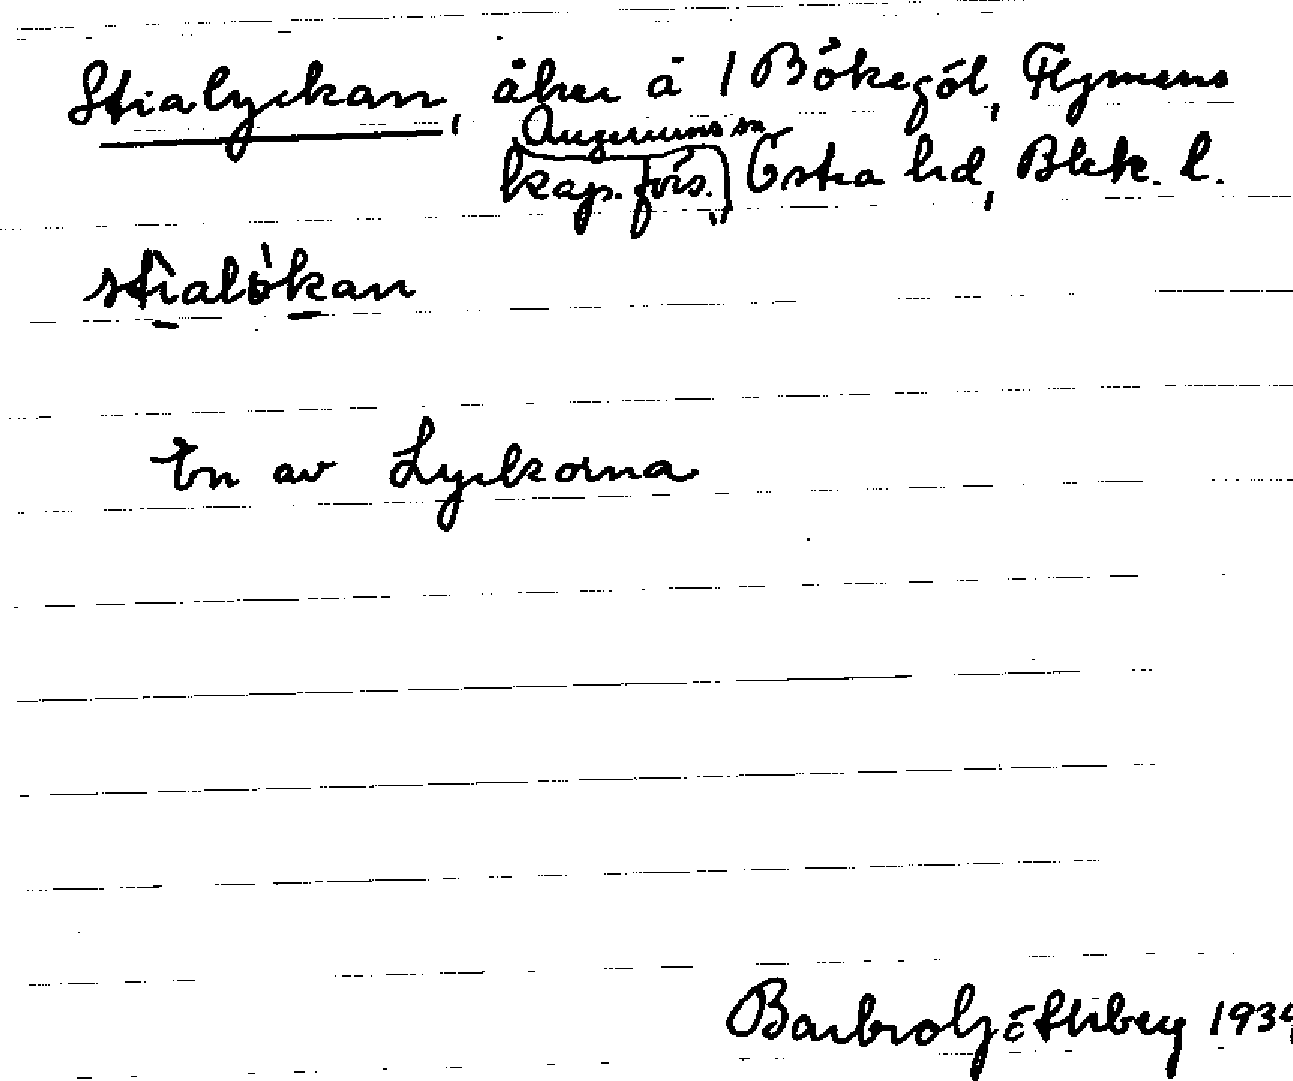 Stialyckan, åker å 1 Bökegöl, Flymens
Augerums sn
kap. förs., Östra hd, Blek. l.
stialökan
En av Lyckorna
Barbro